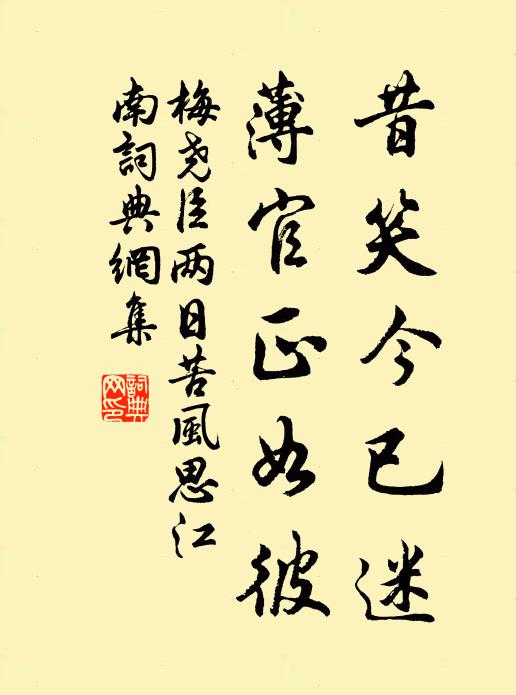 昔笑今已迷
薄官正如彼
梅尧臣两日苦風思江
南詞典網集
詞典
网印